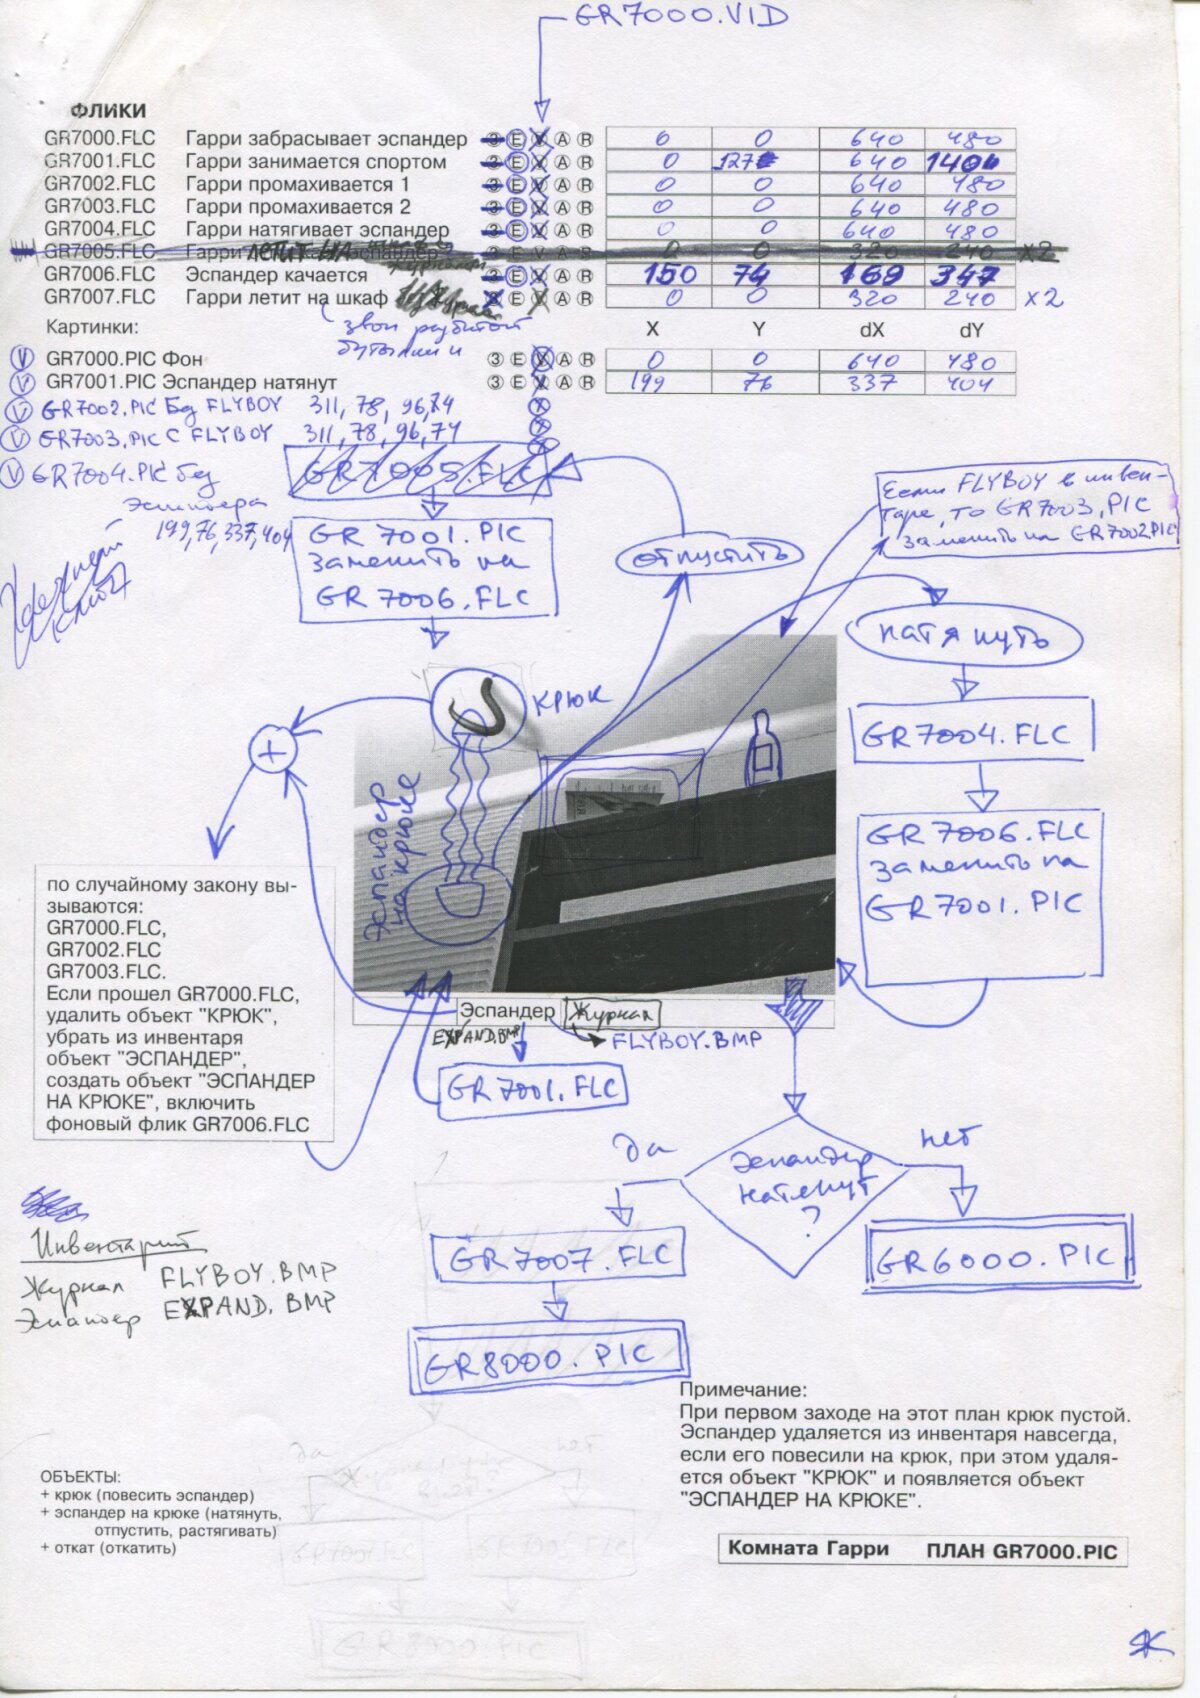 GR7000.VID
ФЛИКИ
GR7000.FLC Гарри забрасывает эспандер З Е V A R 0 0 640 480
GR7001.FLC Гарри занимается спортом З Е V A R 0 127 640 140
GR7002.FLC Гарри промахивается 1 З Е V A R 0 0 640 480
GR7003.FLC Гарри промахивается 2 З Е V A R 0 0 640 480
GR7004.FLC Гарри натягивает эспандер З Е V A R 0 0 640 480
GR7005.FLC Гарри ЛЕТИТ НА эспандер З Е V A R 0 0 320 240 x2
GR7006.FLC Эспандер качается З Е V A R 150 74 169 347
GR7007.FLC Гарри летит на шкаф З Е V A R 0 0 320 240 x2
звон разбитой
бутылки
Картинки: X Y dX dY
V GR7000.PIC Фон З Е V A R 0 0 640 480
V GR7001.PIC Эспандер натянут З Е V A R 199 76 337 404
V GR7002.PIC Без FLYBOY 311, 78, 96, 74
V GR7003.PIC С FLYBOY 311, 78, 96, 74
V GR7004.PIC без
Эспандера
199, 76, 337, 404
GR7005.FLC
GR7001.PIC
заменить на
GR7006.FLC
отпустить
Если FLYBOY в инвен-
таре, то GR7003.PIC
заменить на GR7002.PIC
натянуть
GR7004.FLC
GR7006.FLC
заменить на
GR7001.PIC
КРЮК
+
Эспандер
на крюке
по случайному закону вы-
зываются:
GR7000.FLC,
GR7002.FLC
GR7003.FLC.
Если прошел GR7000.FLC,
удалить объект "КРЮК",
убрать из инвентаря
объект "ЭСПАНДЕР",
создать объект "ЭСПАНДЕР
НА КРЮКЕ", включить
фоновый флик GR7006.FLC
Эспандер Журнал
EXPAND.BMP FLYBOY.BMP
GR7001.FLC
Эспандер
натянут
?
да
нет
GR7007.FLC
GR8000.PIC
GR6000.PIC
Инвентарий
Журнал FLYBOY.BMP
Эспандер EXPAND.BMP
Примечание:
При первом заходе на этот план крюк пустой.
Эспандер удаляется из инвентаря навсегда,
если его повесили на крюк, при этом удаля-
ется объект "КРЮК" и появляется объект
"ЭСПАНДЕР НА КРЮКЕ".
ОБЪЕКТЫ:
+ крюк (повесить эспандер)
+ эспандер на крюке (натянуть,
отпустить, растягивать)
+ откат (откатить)
Комната Гарри ПЛАН GR7000.PIC